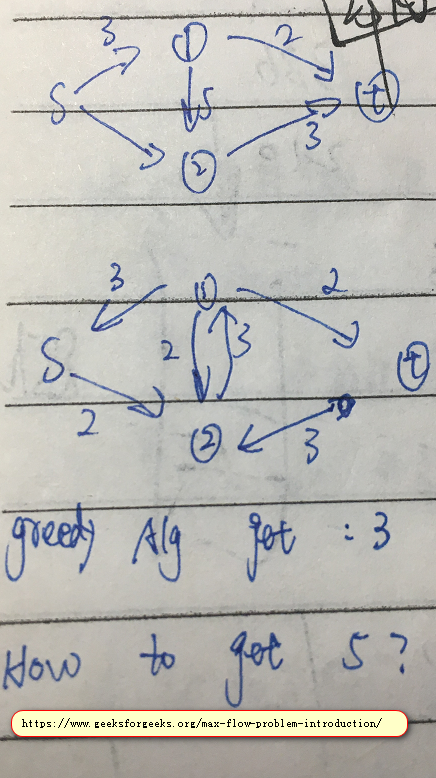 3 1 2
S 5 t
2 3
3 1 2
S 2 3 t
2 2 3
greedy Alg get : 3
How to get 5 ?
https://www.geeksforgeeks.org/max-flow-problem-introduction/